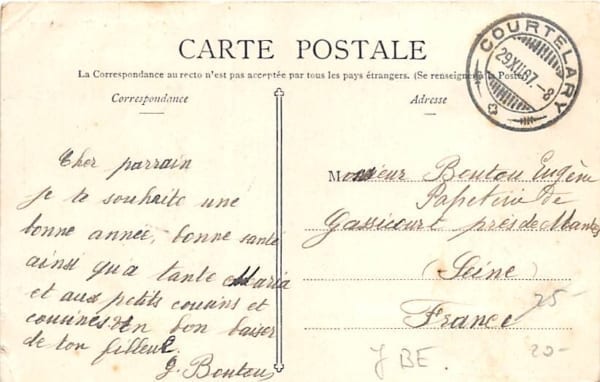 CARTE POSTALE
La Correspondance au recto n'est pas acceptée par tous les pays étrangers. (Se renseigner à la Poste)
Correspondance
Adresse
COURTELARY
29.XII.07.-8
Cher parrain
je te souhaite une
bonne année, bonne santé
ainsi qu'a tante Maria
et aux petits cousins et
cousines. Un bon baiser
de ton filleul.
G. Bouteu
Monsieur Bouteu Eugène
Papeterie de
Gassicourt près de Mantes
(Seine)
France
25-
BE.
20-